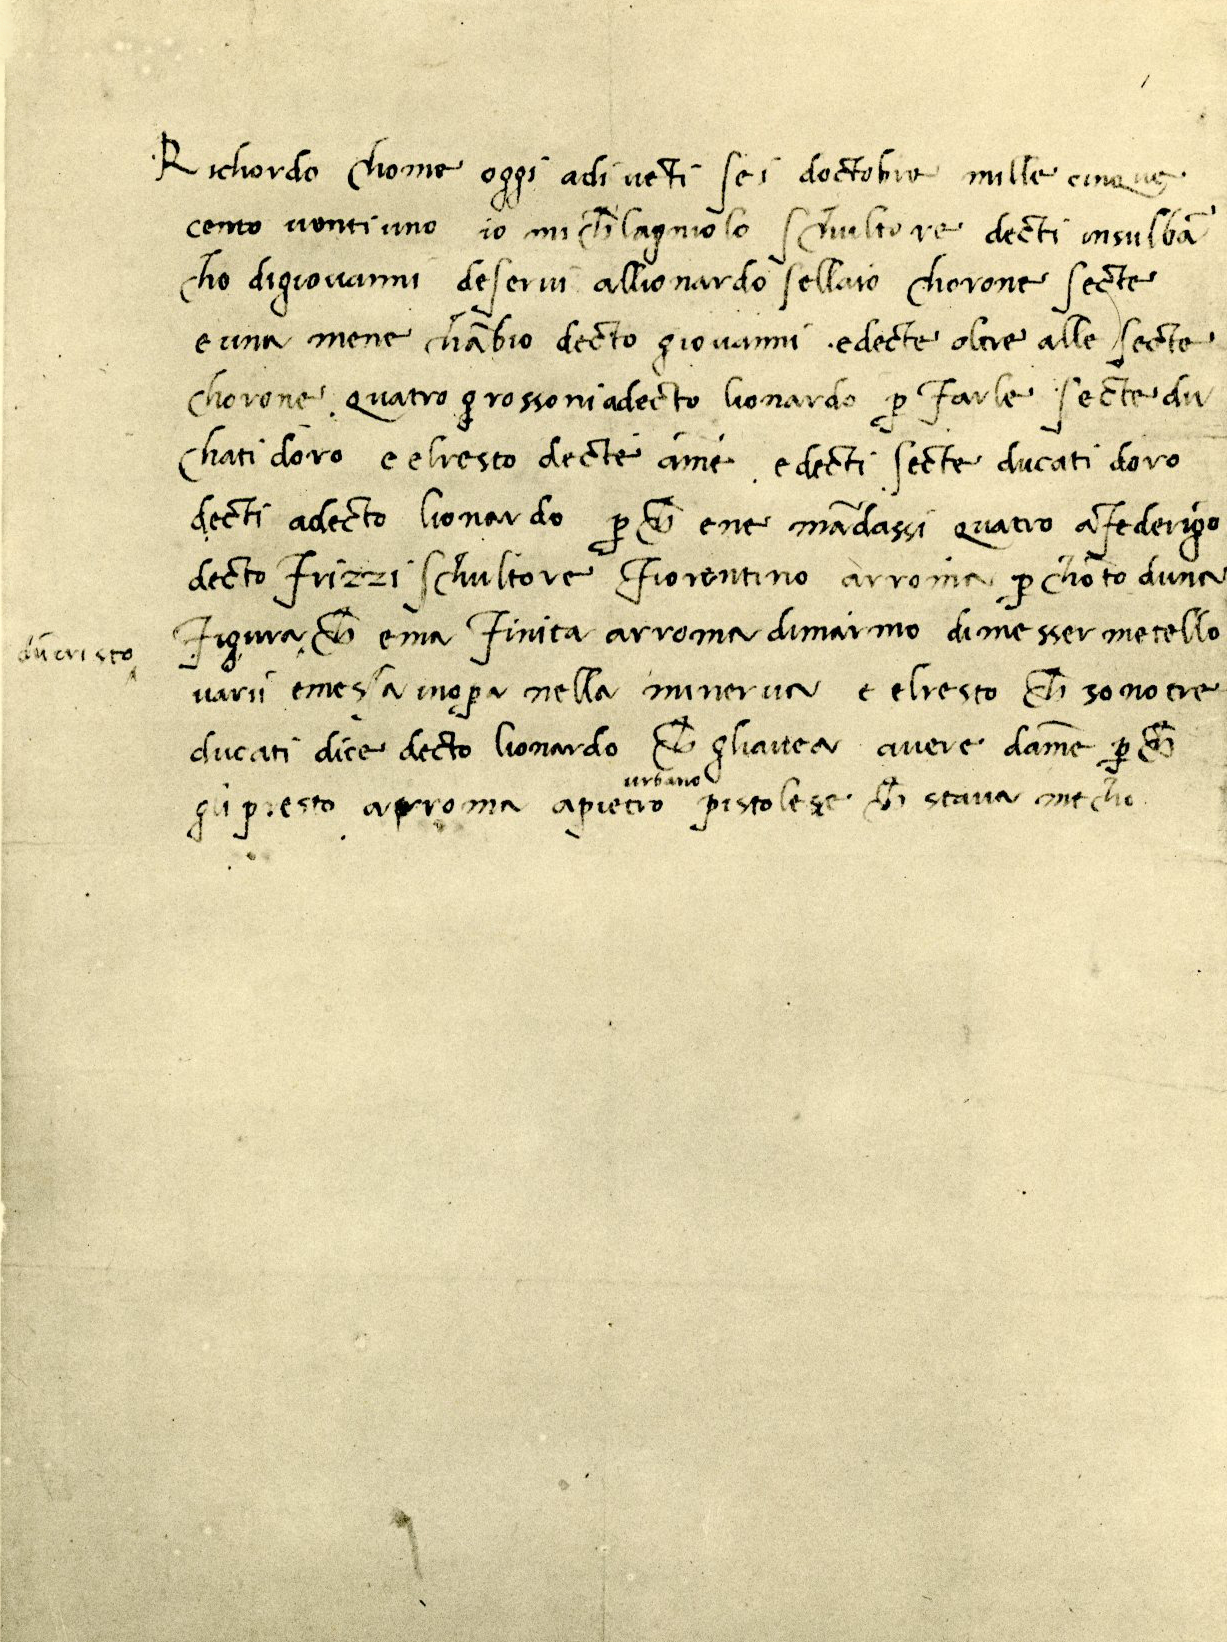 Richordo chome oggi adi veti sei doctobre mille cinque
cento ventiuno io michelagniolo schultore decti insulbā
cho digiovanni deservi allionardo sellaio chorone secte
e una mene chābio decto giovanni edecte oltre alle secte
chorone quatro grossoni adecto lionardo p farle secte du
chati doro e elresto decte ame edecti secte ducati doro
decti adecto lionardo p che ene mādassi quatro a federigo
decto frizzi schultore fiorentino arroma p chōto duna
figura che e ma finita arroma dimarmo di messer metello
dū cristo
varii emessa inopa nella minerva e elresto che sono tre
ducati dice decto lionardo che gliavea avere dame p che
urbano
gli presto arroma apietro pistolese che stava mecho